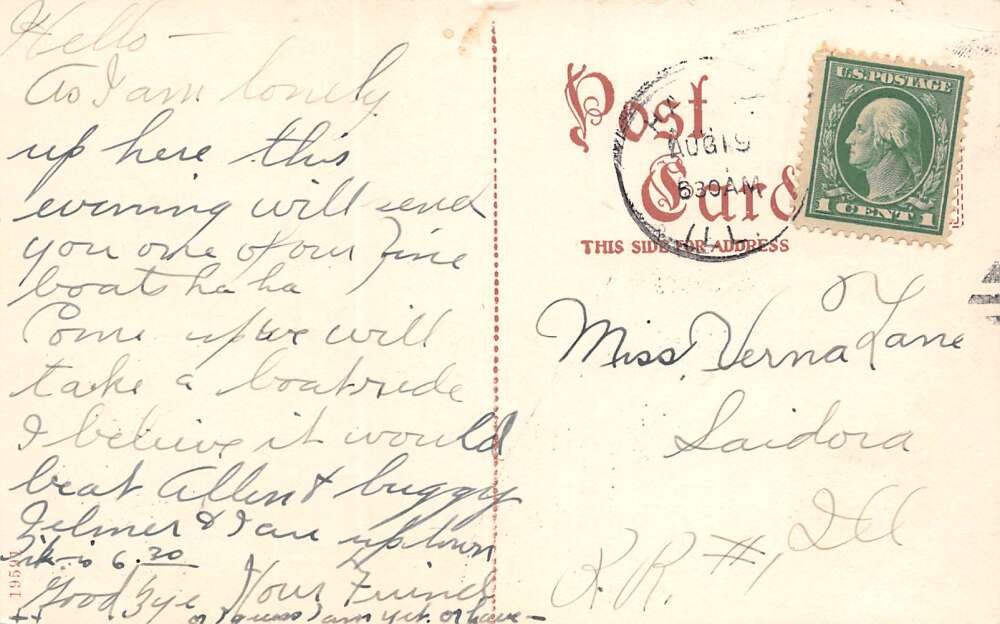 Hello —
As I am lonely
up here this
evening will send
you one of our Fine
boats ha ha
Come up we will
take a boatride
I believe it would
beat Allen & buggy
& I are up town
is 6.30
Good Bye Your Friend
or I guess I am yet. or have —
++
19597
Post
Card
THIS SIDE FOR ADDRESS
AUG 19
630AM
ILL.
U.S. POSTAGE
1 CENT 1
Miss. Verna Lane
Saidora
Ill
R.R. #1